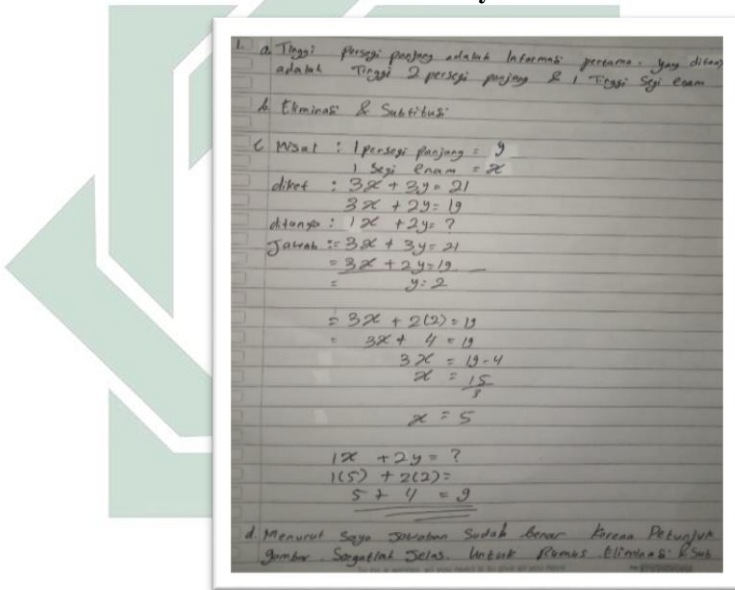 1. a. Tinggi persegi panjang adalah Informasi pertama. yang ditany
adalah Tinggi 2 persegi panjang & 1 Tinggi Segi enam
b. Eliminasi & Subtitusi
c Misal : 1 persegi panjang = y
1 Segi enam = x
diket : 3x + 3y = 21
3x + 2y = 19
ditanya : 1x + 2y = ?
Jawab := 3x + 3y = 21
= 3x + 2y = 19 -
= y = 2
= 3x + 2(2) = 19
= 3x + 4 = 19
3x = 19 - 4
x = 15
3
x = 5
1x + 2y = ?
1(5) + 2(2) =
5 + 4 = 9
d. Menurut Saya Jawaban Sudah benar Karena Petunjuk
gambar Sangatlah Jelas. Untuk Rumus Eliminasi & Sub